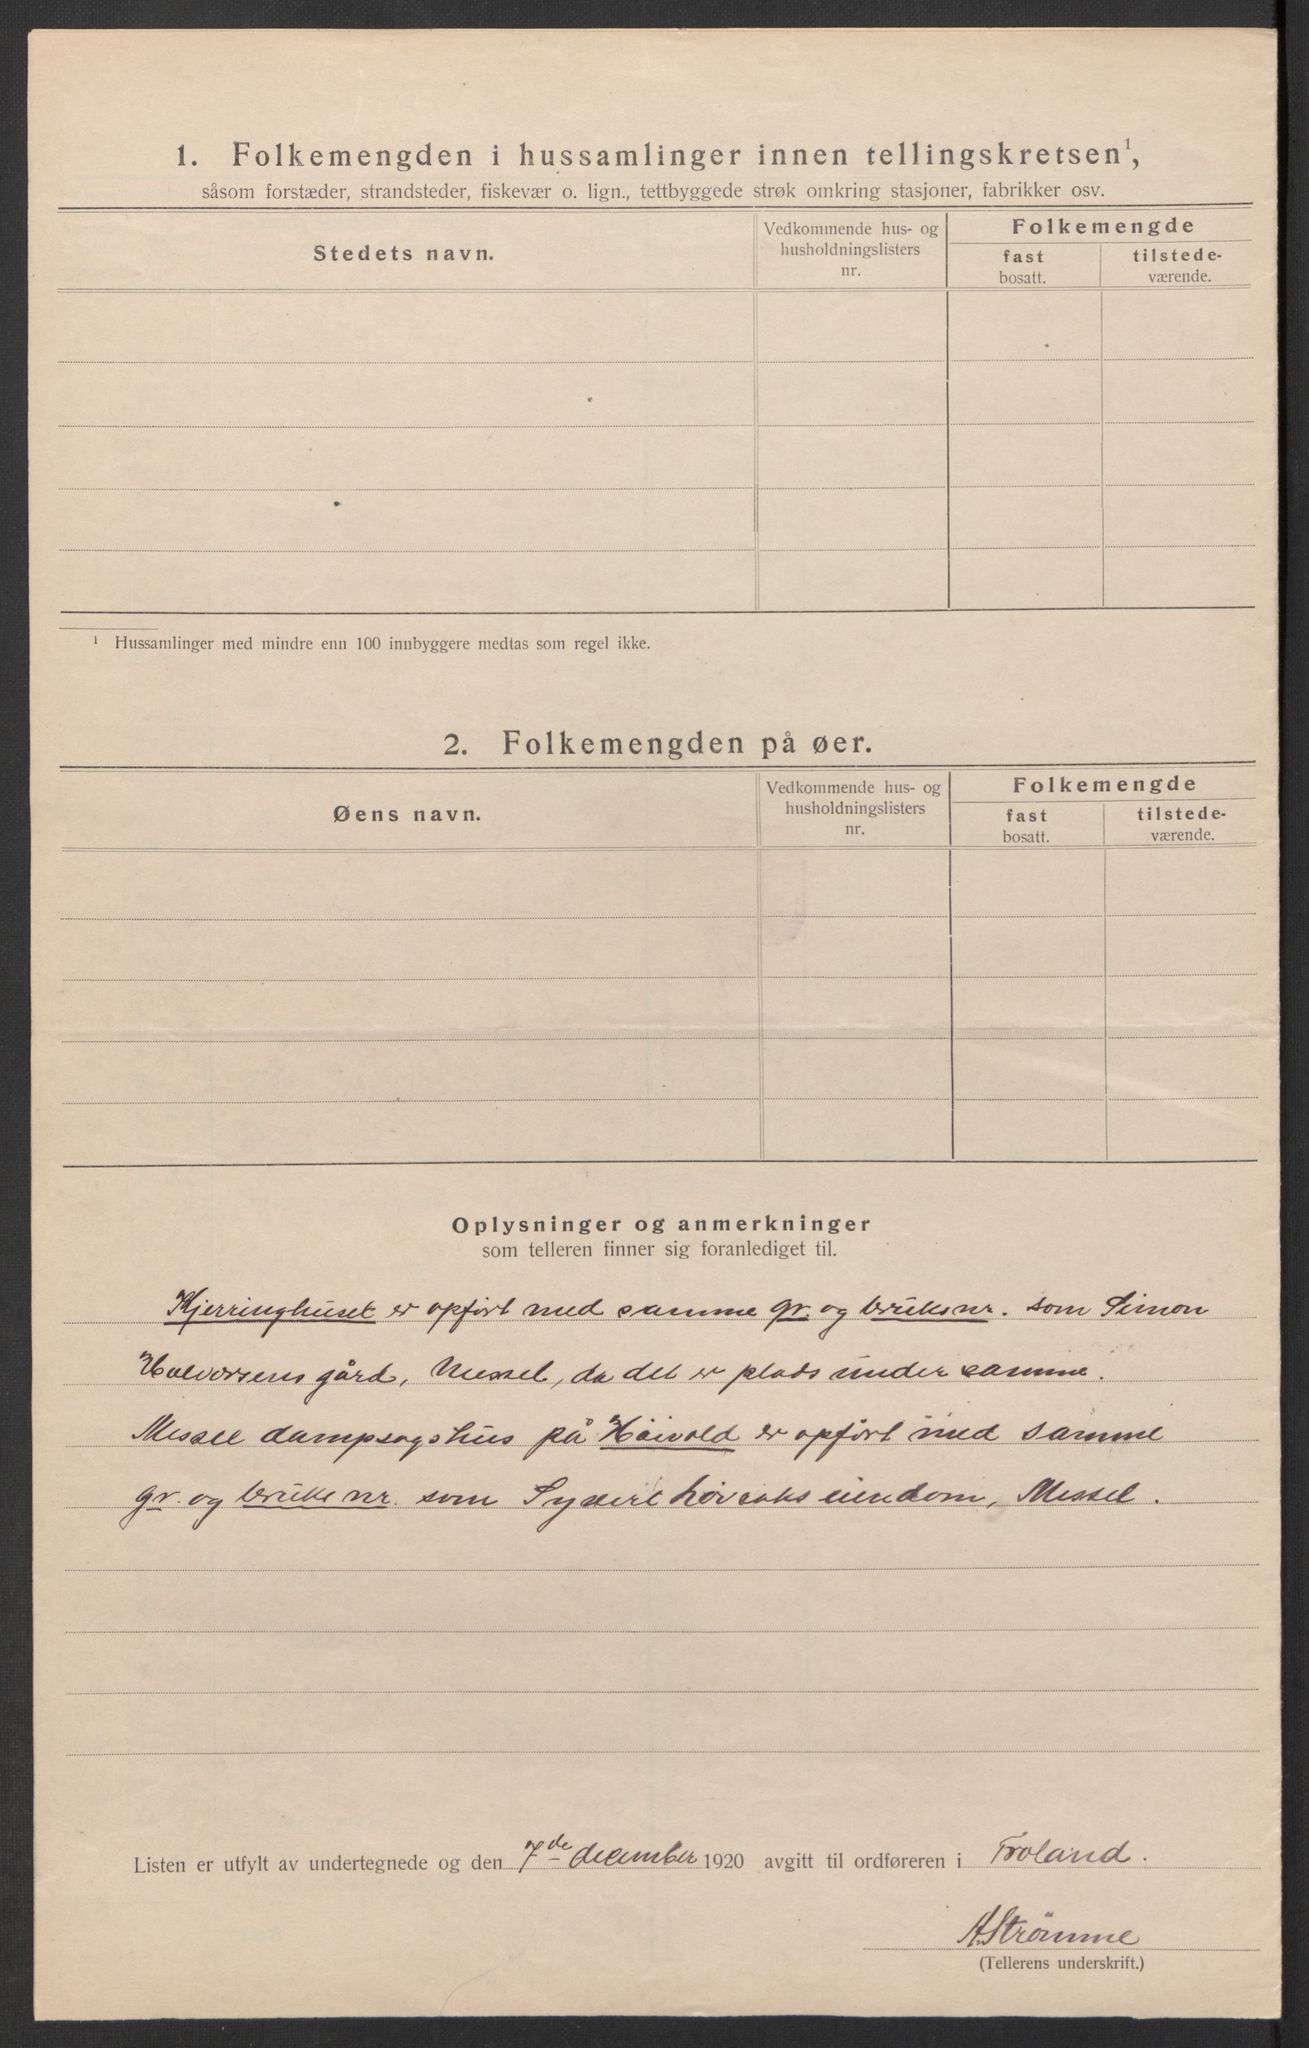 1. Folkemengden i hussamlinger innen tellingskretsen¹,
såsom forstæder, strandsteder, fiskevær o. lign., tettbyggede strøk omkring stasjoner, fabrikker osv.
Stedets navn.
Vedkommende hus- og
husholdningslisters
nr.
Folkemengde
fast
bosatt.
tilstede-
værende.
¹ Hussamlinger med mindre enn 100 innbyggere medtas som regel ikke.
2. Folkemengden på øer.
Øens navn.
Vedkommende hus- og
husholdningslisters
nr.
Folkemengde
fast
bosatt.
tilstede-
værende.
Oplysninger og anmerkninger
som telleren finner sig foranlediget til.
Kjerringhuset er opført med samme gr. og bruksnr. som Simon
Halvorsens gård, Messel, da det er plads under samme.
Messel dampsagshus på Höivold er opført med samme
gr. og bruks nr. som eiendom, Messel.
Listen er utfylt av undertegnede og den 7de december 1920 avgitt til ordføreren i Froland.
A. Strömme
(Tellerens underskrift.)